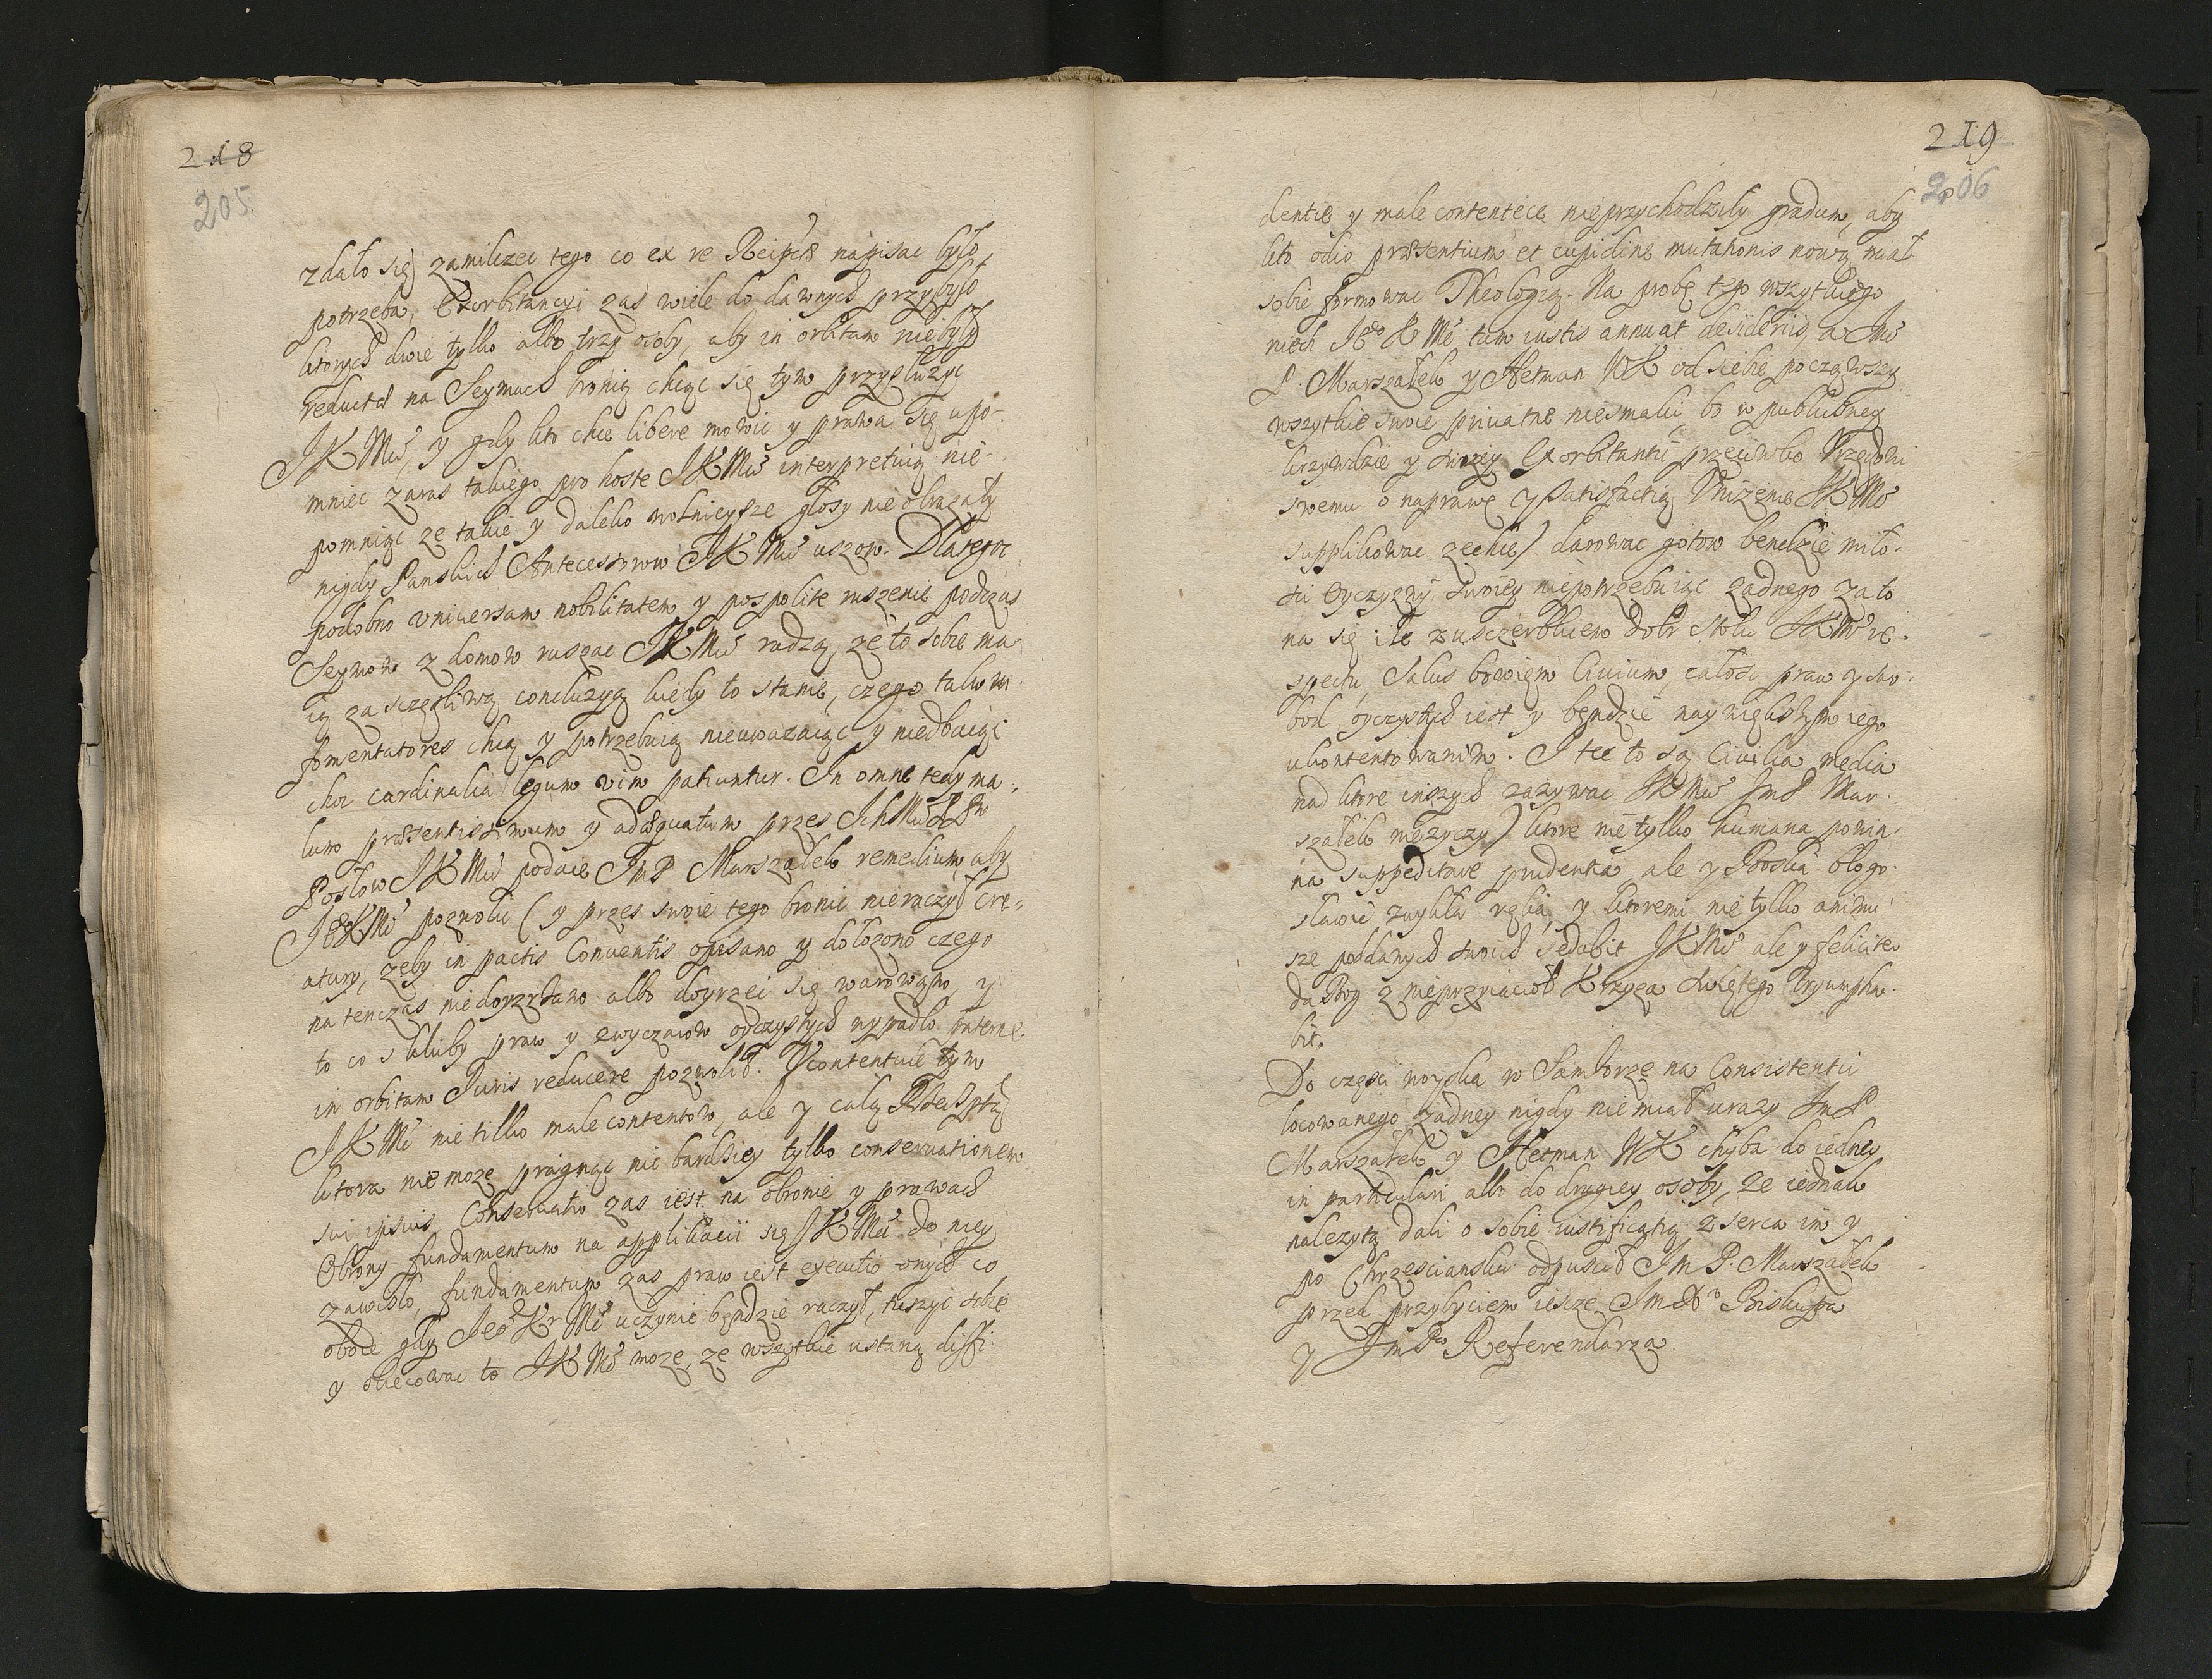 218
205
zdało się zamilczec tego co ex re Reipcae napisac było
potrzeba, Exorbitancyi zas wiele do dawnych przybyło
ktorych dwie tylko albo trzy osoby, aby in orbitam nie były
reducta na Seymach bronią chcąc się tym przysłużyc
JKMci, y gdy kto chce libere mowic y prawa się upo-
mniec zaras takiego pro hoste JKMci interpretuią nie-
pomniąc ze takie y daleko wolnieysze głosy nie obrazały
nigdy Panskich Antecessorow JKMci uszow. Dlatego
podobno vniuersam nobilitatem y pospolite ruszenie podczas
Seymow z domow ruszac JKMci radzą, ze to sobie ma-
ią za szczęsliwą concluzyą kiedy to stanie, czego takowi
fomentatores chcą y potrzebuią nieuwazaiąc y niedbaiąc
choc cardinalia legum vim patiuntur. In omne tedy ma-
lum praesentissimum y adaequatum przes IchMciPPw
Posłow JKMci podaie JmP Marszałek remedium, aby
JeoKMc pozwolic (y przes swoie tego bronic nie raczył cre-
atury, zeby in pactis Conuentis opisano y dołozono czego
na tenczas niedorzrzano albo doyrzec się warowano, y
to co s kluby praw y zwyczaiow oyczystych wypadło
in orbitam Iuris reducere pozwolił. Vcontentuie tym
JKMc nie tilko malecontentow, ale y całą Rzeczptą
ktora nie moze prágnąc nic bardziey tylko conseruationem
sui ipsius, Conseruatio zas iest na obronie y prawach
Obrony fundamentum na applikacii się JKMci do niey
zawisło, fundamentum zas praw iest executio onych co
oboie gdy Jeo Kr Mc uczynic bęndzie raczył, tuszyc sobie
y obiecowac to JKMc moze, ze wszytkie ustaną diffi-
219
206
dentie y malecontentece nieprzychodziły gradum, aby
kto odio praesentium et cupidine mutationis nową miał
sobie formowac Theologią. Na probę tego wszytkiego
niech Jeo K Mc tam iustis annuat desideriis, a Jmc
P. Marszałek y Hetman WK od siebie począwszy
wszytkie swoie priuatne niesmaki, bo w publiczney
krzywdzie y swoiey Exorbitantii przeciwko Vrzędowi
swemu o naprawę y satisfactią Vnizenie JKMc
supplikowac zechce) darowac gotow bendzie miło-
sci Oyczyzny swoiey niepotrzebuiąc zadnego za to
na się ile z uszczerbkiem dobr stołu JKMci re-
spectu, Salus bowięm Ciuium, całosc praw y swo-
bod oyczystych iest y bęndzie naywiększym iego
ukontentowaniem. I tec to są Ciuilia media
nad ktore inszych zazywac JKMci JmP Mar-
szałek nie zyczy) ktore nie tylko humana powin-
na suppeditare prudentia, ale y Boska błogo-
sławic zwykła ręka, y ktoremi nie tylko animu-
sze poddanych swoich sedabit JKMc ale y feliciter
da Bog z nieprzyiacioł Krzyza swiętego tryumpha-
bit.
Do częsci woyska w Samborze na Consistentii
locowanego zadney nigdy nie miał urazy JmP
Marszałek y Hetman WK chyba do iedney
in particulari albo do drugiey osoby, ze iednak
nalezytą dali o sobie iustificatią z serca im y
po Chrzescianskui odpuscił JmP. Marszałek
przed przybyciem iescze JmXa Biskupa
y JmPa Referendarza.